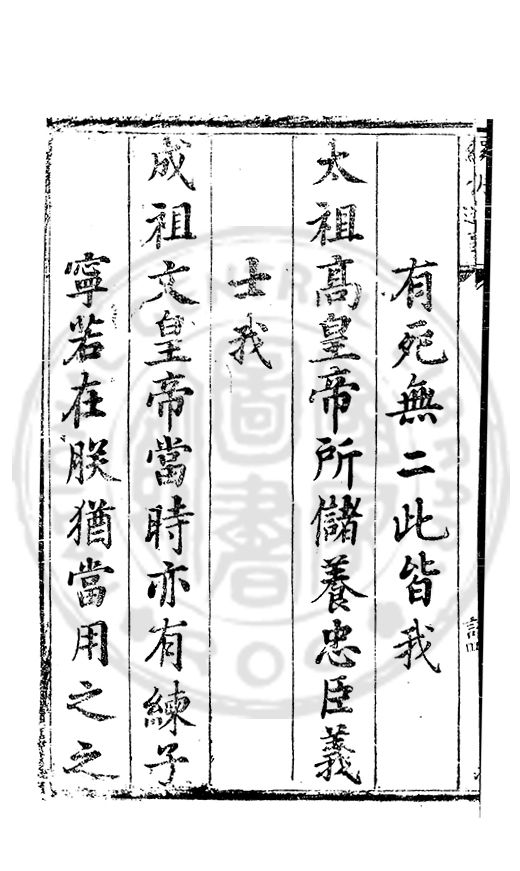 有死無二此皆我
太祖高皇帝所儲養忠臣義
士我
成祖文皇帝當時亦有練子
寧若在朕猶當用之之